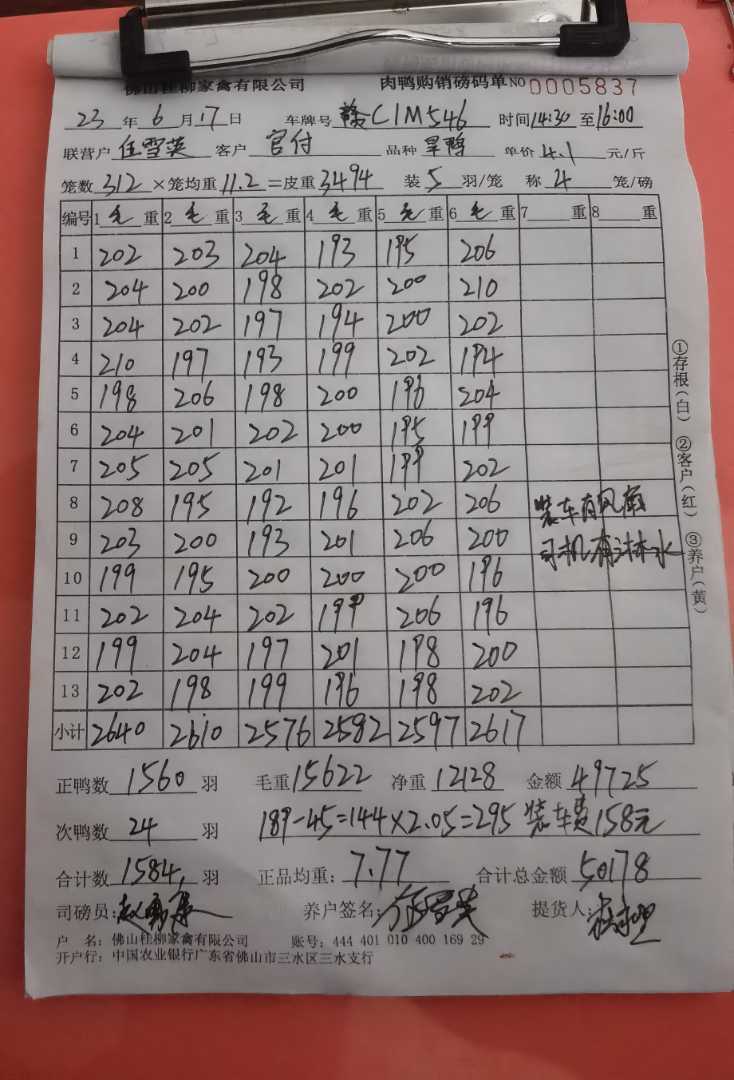 佛山桂柳家禽有限公司 肉鸭购销磅码单 NO 0005837
23 年 6 月 17 日 车牌号 赣C1M546 时间 14:30 至 16:00
联营户 任雪英 客户 官付 品种 旱鸭 单价 4.1 元/斤
笼数 312 ×笼均重 11.2 =皮重 3494 装 5 羽/笼 称 4 笼/磅
编号 1 毛 重 2 毛 重 3 毛 重 4 毛 重 5 毛 重 6 毛 重 7 重 8 重
1 202 203 204 193 195 206
2 204 200 198 202 200 210
3 204 202 197 194 200 202
4 210 197 193 199 202 194
5 198 206 198 200 196 204
6 204 201 202 200 195 199
7 205 205 201 201 199 202
8 208 195 192 196 202 206 装车有风扇
9 203 200 193 201 206 200 司机有淋水
10 199 195 200 200 200 196
11 202 204 202 199 206 196
12 199 204 197 201 198 200
13 202 198 199 196 198 202
小计 2640 2610 2576 2582 2597 2617
正鸭数 1560 羽 毛重 15622 净重 12128 金额 49725
次鸭数 24 羽 189-45=144×2.05=295 装车费158元
合计数 1584 羽 正品均重: 7.77 合计总金额 50178
司磅员: 养户签名: 任雪英 提货人:
户 名: 佛山桂柳家禽有限公司 账号: 444 401 010 400 169 29
开户行: 中国农业银行广东省佛山市三水区三水支行
①存根(白) ②客户(红) ③养户(黄)